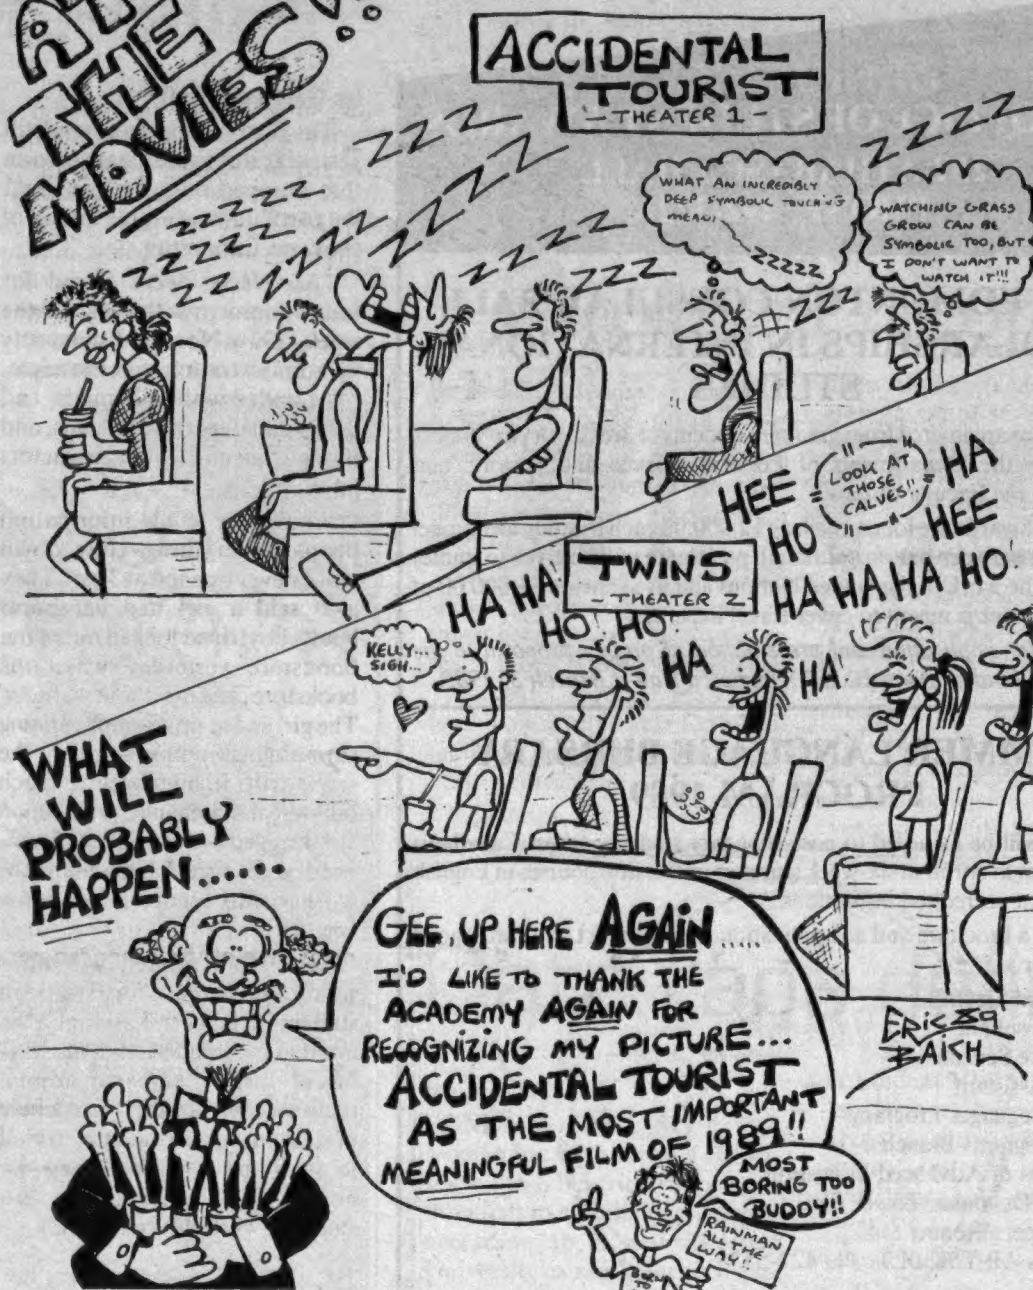 AT
THE
MOVIES!!
ACCIDENTAL
TOURIST
- THEATER 1
ZZZZZ
WHAT AN INCREDIBLY
DEEP SYMBOLIC TOUCHING
MEANI
ZZZZZ
WATCHING GRASS
GROW CAN BE
SYMBOLIC TOO, BUT
I DON'T WANT TO
WATCH IT!!!
ZZZZ
HEE
HO
"LOOK AT
THOSE
CALVES!!"
HA
HEE
TWINS
- THEATER 2
HA HA
HO HO
HA HA HA HO
KELLY...
SIGH...
HA
HA
WHAT
WILL
PROBABLY
HAPPEN.....
GEE UP HERE AGAIN.....
I'D LIKE TO THANK THE
ACADEMY AGAIN FOR
RECOGNIZING MY PICTURE...
ACCIDENTAL TOURIST
AS THE MOST IMPORTANT
MEANINGFUL FILM OF 1989!!
ERIC 89
BAICH
MOST
BORING TOO
BUDDY!!
RAINMAN
ALL THE
WAY!!
BORN
TO